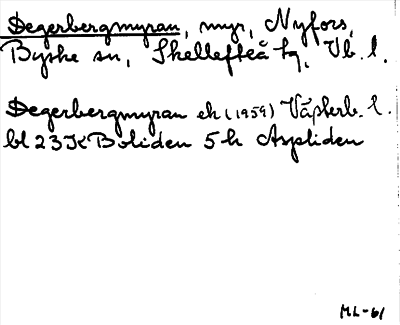 Degerbergmyran, myr, Nyfors,
Byske sn, Skellefteå tg, Vb. l.
Degerbergmyran ek (1959) Västerb. l.
bl 23 K Boliden 5 h Aspliden
ML-61